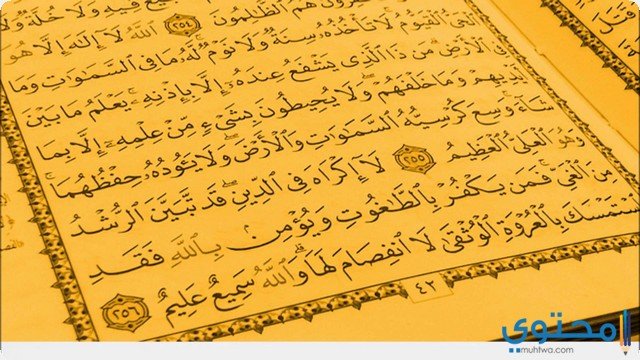 فِيهِ وَلَا خُلَّةٌ وَلَا
هُمُ ٱلظَّٰلِمُونَ ٢٥٤ ٱللَّهُ لَآ إِلَٰهَ إِلَّا هُوَ
ٱلْحَىُّ ٱلْقَيُّومُ لَا تَأْخُذُهُۥ سِنَةٌ وَلَا نَوْمٌ لَّهُۥ مَا فِى ٱلسَّمَٰوَٰتِ وَمَا
فِى ٱلْأَرْضِ مَن ذَا ٱلَّذِى يَشْفَعُ عِندَهُۥٓ إِلَّا بِإِذْنِهِۦ يَعْلَمُ مَا بَيْنَ
أَيْدِيهِمْ وَمَا خَلْفَهُمْ وَلَا يُحِيطُونَ بِشَىْءٍ مِّنْ عِلْمِهِۦٓ إِلَّا بِمَا
شَآءَ وَسِعَ كُرْسِيُّهُ ٱلسَّمَٰوَٰتِ وَٱلْأَرْضَ وَلَا يَـُٔودُهُۥ حِفْظُهُمَا
وَهُوَ ٱلْعَلِىُّ ٱلْعَظِيمُ ٢٥٥ لَآ إِكْرَاهَ فِى ٱلدِّينِ قَد تَّبَيَّنَ ٱلرُّشْدُ
مِنَ ٱلْغَىِّ فَمَن يَكْفُرْ بِٱلطَّٰغُوتِ وَيُؤْمِنۢ بِٱللَّهِ فَقَدِ
ٱسْتَمْسَكَ بِٱلْعُرْوَةِ ٱلْوُثْقَىٰ لَا ٱنفِصَامَ لَهَا وَٱللَّهُ سَمِيعٌ عَلِيمٌ ٢٥٦
٤٢
محتوى
www.muhtwa.com